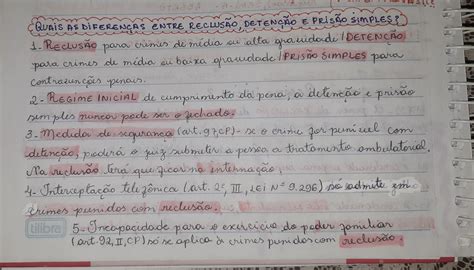 QUAIS AS DIFERENÇAS ENTRE RECLUSÃO, DETENÇÃO E PRISÃO SIMPLES?
1. RECLUSÃO para crimes de média ou alta gravidade / DETENÇÃO
para crimes de média ou baixa gravidade / PRISÃO SIMPLES para
contravenções penais.
2- REGIME INICIAL de cumprimento da pena, a detenção e prisão
simples nunca pode ser o fechado.
3- Medida de segurança (art. 97, CP) - se o crime for punível com
detenção, poderá o juiz submeter a pessoa a tratamento ambulatorial.
Na reclusão terá que ficar na internação.
4- Interceptação telefônica (art. 2º, III, LEI Nº 9.296) só admite em
crimes punidos com reclusão.
5- Incapacidade para o exercício do poder familiar
(art. 92, II, CP) só se aplica à crimes punidos com reclusão.
tilibra